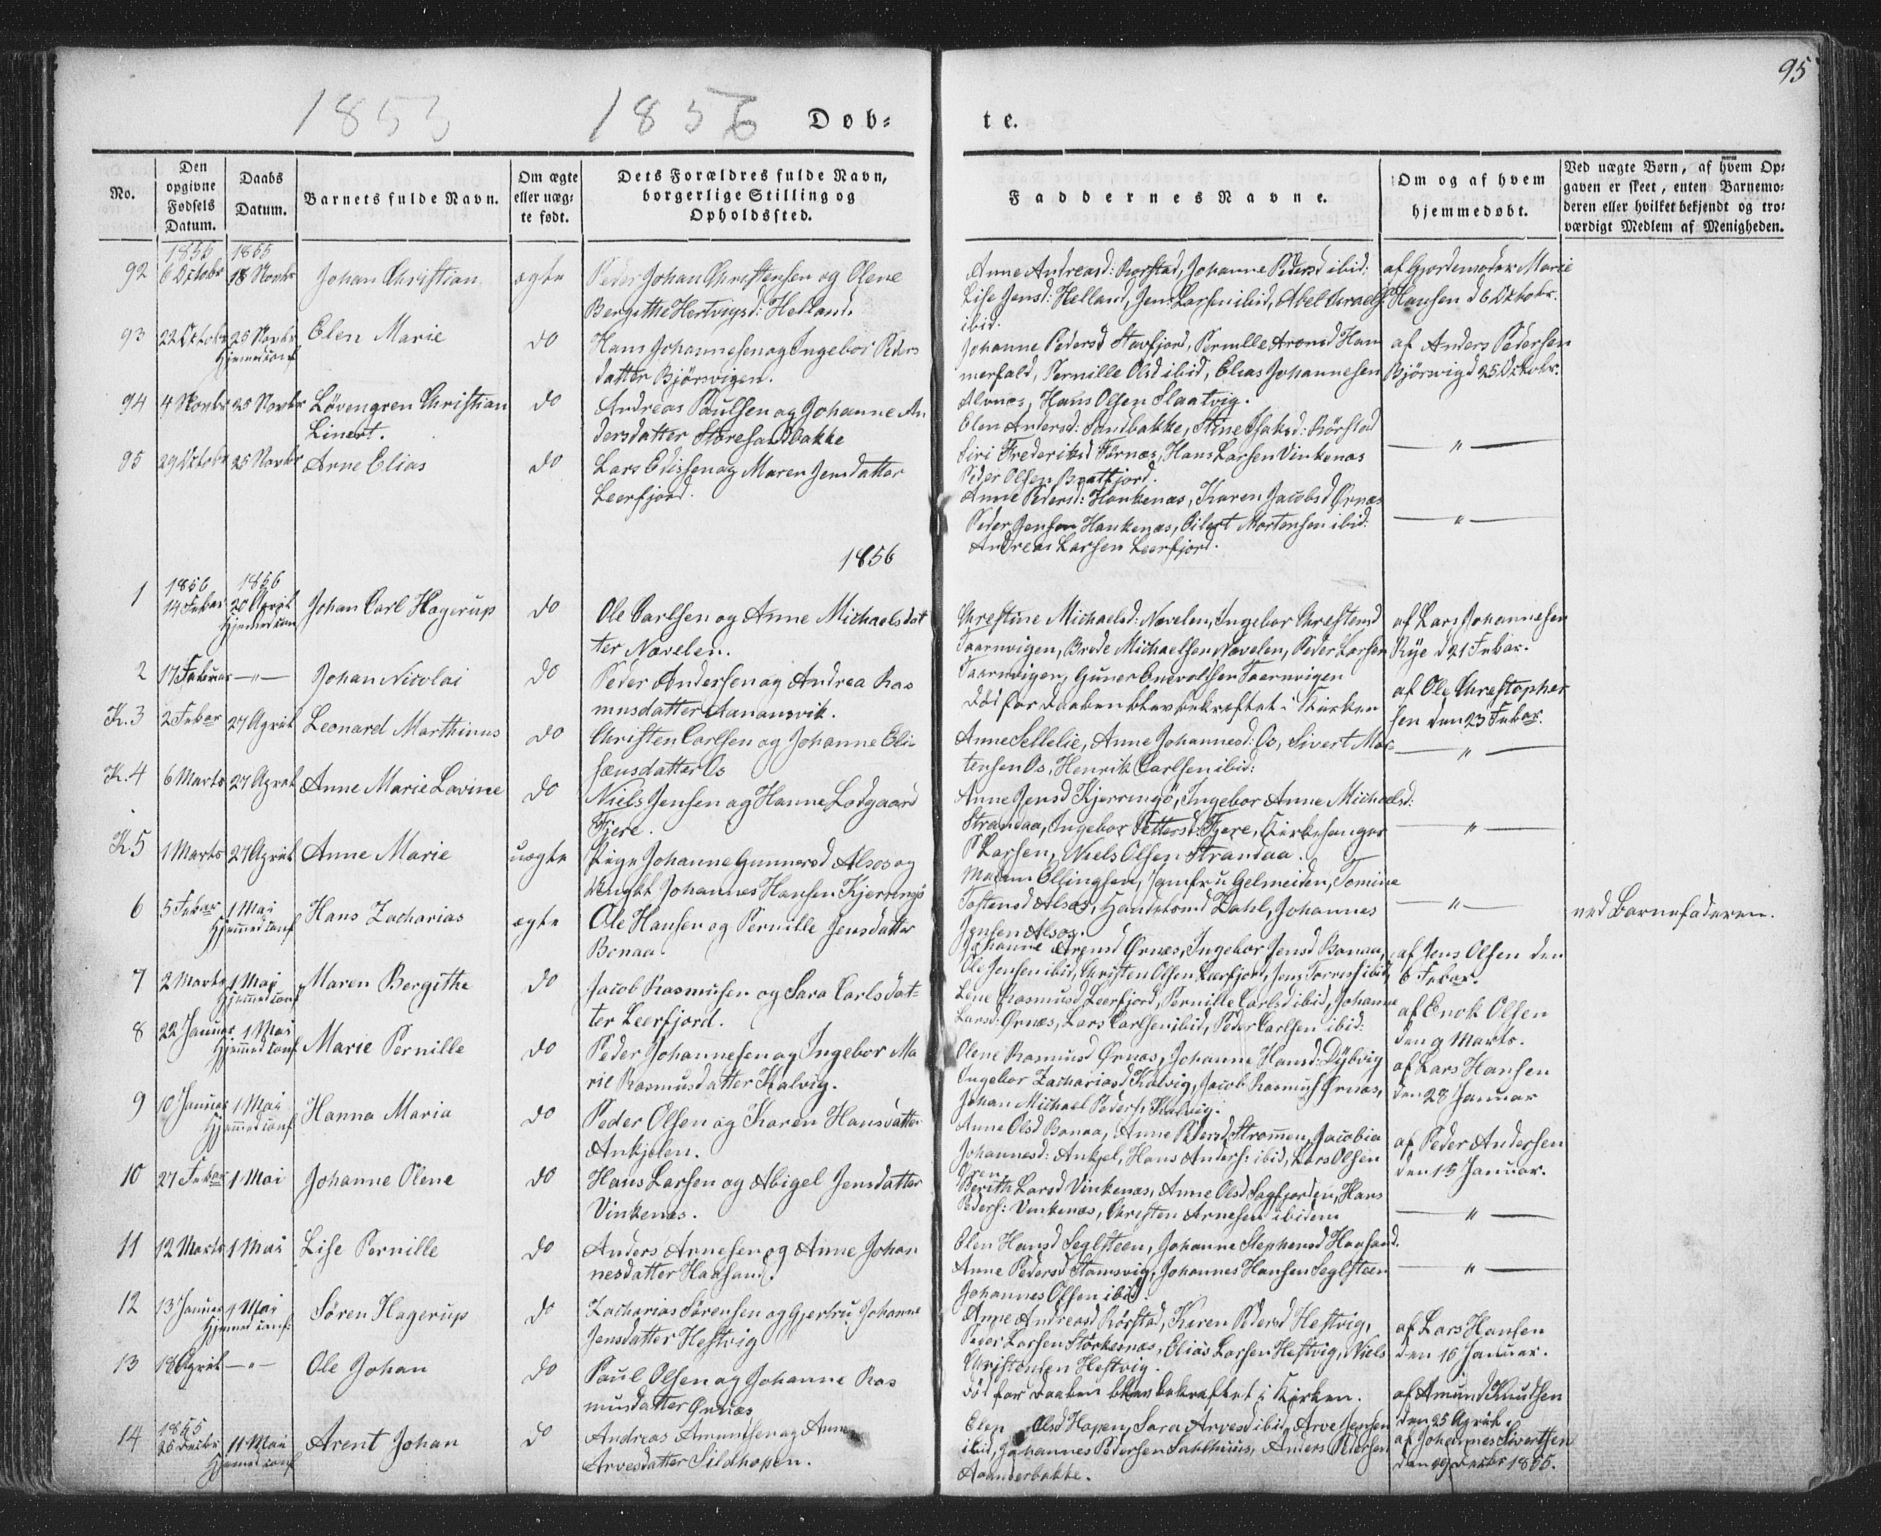 95
1855 1856 Døb=
te.
No.
Den opgivne Fødsels Datum.
Daabs Datum.
Barnets fulde Navn.
Om ægte eller uæg- te født.
Dets Forældres fulde Navn, borgerlige Stilling og Opholdssted.
Faddernes Navne.
Om og af hvem hjemmedøbt.
Ved uægte Børn, af hvem Op- gaven er skeet, enten Barnemo- deren eller hvilket bekjendt og tro- værdigt Medlem af Menigheden.
1855 1855
92 6 Octobr 18 Novbr Johan Christian ægte Peder Johan Christensen og Olene
Bergitthe Hertvigsd: Helland.
Anne Andreasd: Rørstad, Johanne Pedersd ibid:
Lise Jensd: Helland, Jens Larsen ibid, Abel
ibid.
af Gjordemoder Marie
Hansen d 6 Octobr.
93 22 Octobr 25 Novbr Elen Marie do Hans Johannesen og Ingebor Peders
Hjemmed conf
datter Bjørsvigen.
Johanne Pedersd Stavfjord, Pernille Aronsd Ham
merfald, Pernille Olsd ibid, Elias Johannesen
Alvnes, Hans Olsen Slaatvig.
af Anders Pedersen
Bjørvig d 25 Octobr.
94 4 Novbr 25 Novbr Løvengren Christian do Andreas Paulsen og Johanne An
Linert.
dersdatter Storesandbakke
Elen Andersd: Sandbakke, Stine Isaksd: Rørstad
Siri Frederiksd Førnæs, Hans Larsen Vinkenæs
Peder Olsen Brattfjord.
— " —
95 29 Octobr 25 Novbr Arne Elias do Lars Elissen og Maren Jensdatter
Leerfjord.
Anne Pedersd: Hankenæs, Karen Jacobsd Ørnæs
Peder Jensen Hankenæs, Eilert Mortensen ibid:
Andreas Larsen Leerfjord.
— " —
1856
1856 1856
1 14 Febar 20 April Johan Carl Hagerup do Ole Carlsen og Anne Michaelsdat
Hjemmed conf
ter Navelen.
Chrestine Michaelsd: Navelen, Ingebor Chrestensd
Taarnvigen, Brede Michaelsen Navelen, Peder Larsen
Taarnvigen, Guner Enevoldsen Taarnvigen
af Lars Johannesen
Rye d 21 Febar.
2 17 Februar —"— Johan Nicolai do Peder Andersen og Andrea Ras
musdatter Aanonsvik.
Død før Daaben blev bekræftet i Kirken
af Ole Christopher
sen den 23 Febar.
K. 3 2 Febar 27 April Leonard Marthinus do Christen Carlsen og Johanne Eli
sæusdatter Os
Anne Sellelie, Anne Johannesd: Os, Sivert Mor
tensen Os, Henrik Carlsen ibid:
— " —
K. 4 6 Marts 27 April Anne Marie Lovine do Niels Jensen og Hanne Lodgaard
Fjere.
Anne Jensd Kjerringø, Ingebor Anne Michaelsd:
Strandaa, Ingebor Pettersd: Fjere, Kirkesanger
P Larsen, Niels Olsen Strandaa.
— " —
K. 5 1 Marts 27 April Anne Marie uægte Pige Johanne Gunnersd Alsos og
Ungkl Johannes Hansen Kjerringø
Ellingsen, Jomfru Gelmeiden, Tomine
Tostensd Alsos, Handelsmd Dahl, Johannes
Jensen Alsos.
— " —
ved Barnefaderen.
6 5 Febar 1 Mai Hans Zacharias ægte Ole Hansen og Pernille Jensdatter
Hjemmed conf
Bonaa.
Johanne Arensd Ørnæs, Ingebor Jensd Bonaa,
Ole Jensen ibid, Christen Olsen Leerfjord, Jens Torres: ibid,
af Jens Olsen den
6 Febar.
7 2 Marts 1 Mai Maren Bergithe do Jacob Rasmusen og Sara Carlsdat-
Hjemmed conf
ter Leerfjord.
Lene Rasmusd Leerfjord, Pernille Carlsd ibid, Johanne
Larsd: Ørnæs, Lars Carlsen ibid, Peder Carlsen ibid:
af Enok Olsen
den 9 Marts.
8 22 Januar 1 Mai Marie Pernille do Peder Johannesen og Ingebor Ma
Hjemmed conf
rie Rasmusdatter Kalvig.
Oline Rasmusd Ørnæs, Johanne Hansd: Dybvig
Ingebor Zachariasd Kalvig, Jacob Rasmus: Ørnæs,
Johan Michael Peders: Kalvig.
af Lars Hansen
den 28 Januar
9 10 Januar 1 Mai Hanna Maria do Peder Olsen og Karen Hansdatter
Hjemmed conf
Ankjølen.
Anne Olsd Bonaa, Anne Pedersd Strømmen, Jacobia
Johannesd: Ankjel, Hans Anders: ibid, Lars Olsen
af Peder Andersen
den 15 Januar.
10 27 Febar 1 Mai Johanne Olene do Hans Larsen og Abigel Jensdatter
Vinkenæs.
Berith Larsd Vinkenæs, Anne Olsd Sagfjorden, Hans
Peders: Vinkenæs, Christen Arnesen ibidem
— " —
11 12 Marts 1 Mai Lise Pernille do Anders Arnesen og Anne Johan
nesdatter Haasand.
Olen Hansd Seglsteen, Johanne Stephensd Haasand.
Anne Pedersd Stamsvig, Johannes Hansen Seglsteen
Johannes Olsen ibid.
— " —
12 13 Januar 1 Mai Søren Hagerup do Zacharias Sørensen og Gjertru Johanne
Hjemmed conf.
Jensdatter Hestvig
Anne Andreasd Rørstad, Karen Pedersd Hestvig,
Peder Larsen Storkesnæs, Elias Larsen Hestvig, Niels
Christensen Hestvig.
af Lars Hansen
den 16 Januar.
13 18 April —"— Ole Johan do Paul Olsen og Johanne Ras
musdatter Ørnæs
Død før Daaben blev bekræftet i Kirken.
af Amund Knudsen
den 25 April.
1855
14 26 Decbr 11 Mai Arent Johan do Andreas Amundsen og Anne
Hjemmed conf
Arvesdatter Sildhopen.
Olsd Hopen, Sara Arvesd ibid, Arve Jensen
ibid, Johannes Pedersen Salthuus, Anders Pedersen
af Johannes Siverttsen
den 29 Decbr 1855.